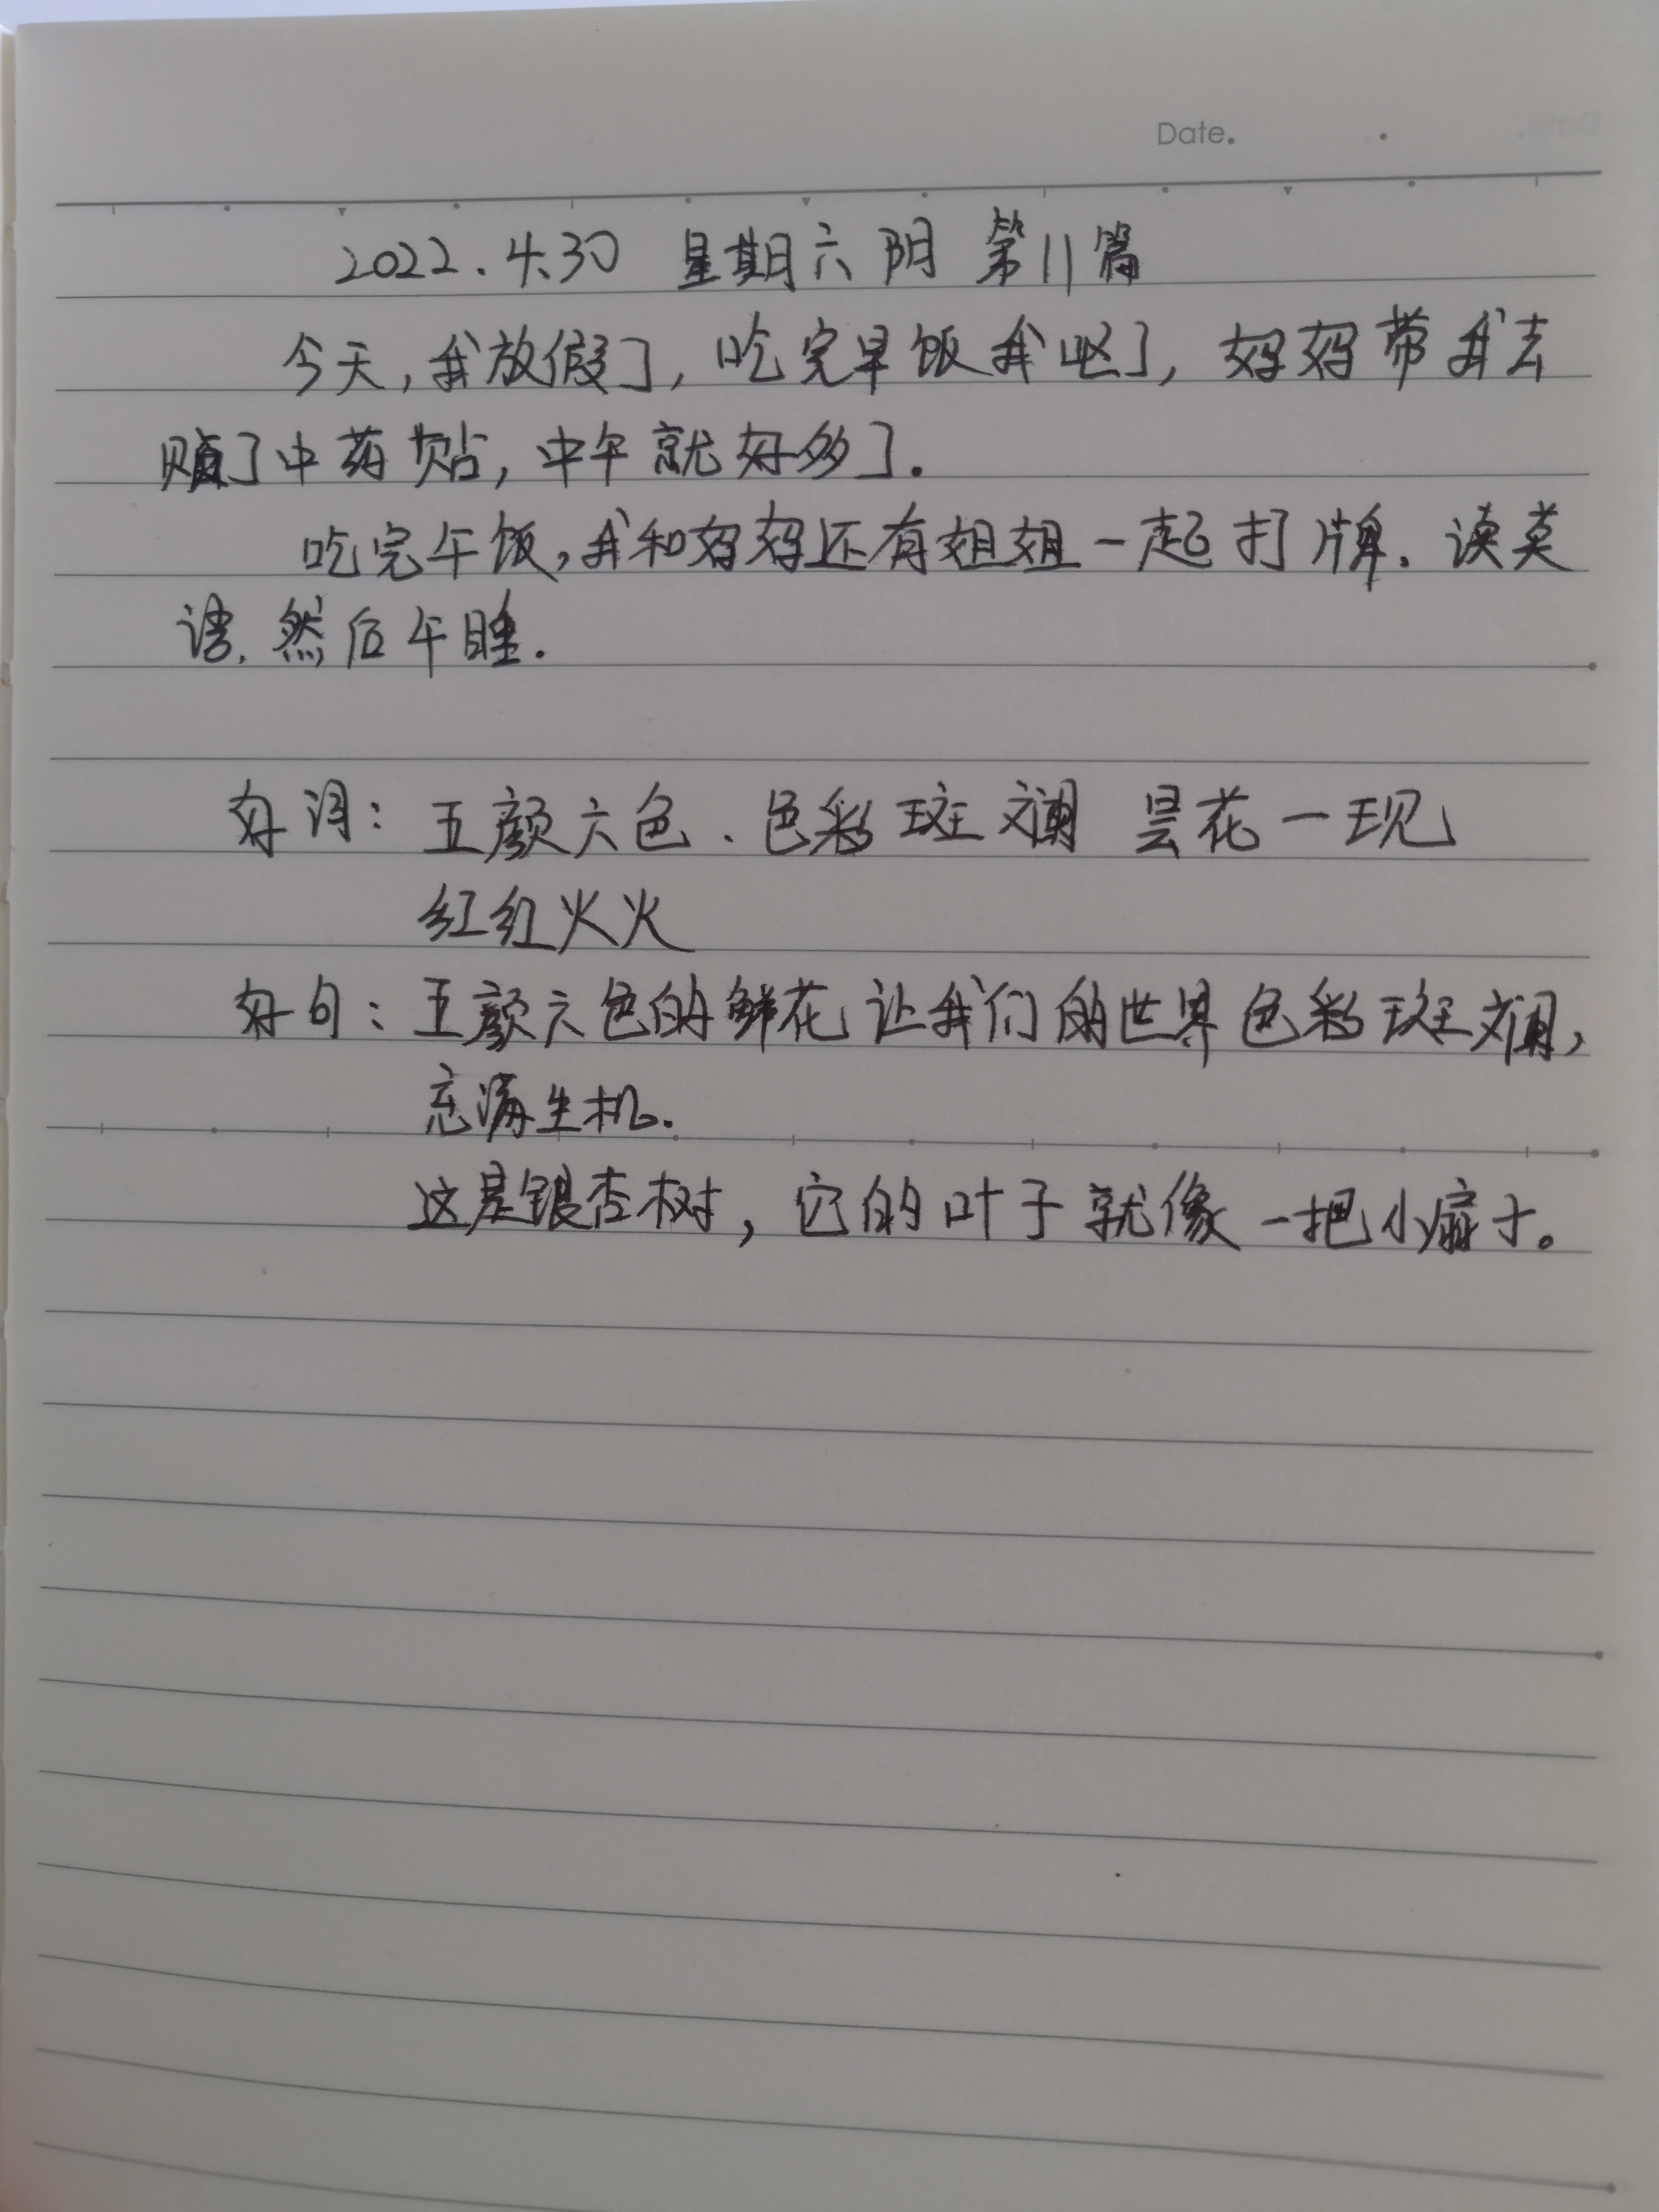 Date.
2022.4.30 星期六 阴 第11篇
今天,我放假了,吃完早饭我呕了,妈妈带我去
贴了中药贴,中午就好多了.
吃完午饭,我和妈妈还有姐姐一起打牌.读英
语.然后午睡.
好词:五颜六色、色彩斑斓 昙花一现
红红火火
好句:五颜六色的鲜花让我们的世界色彩斑斓,
充满生机.
这是银杏树,它的叶子就像一把小扇子。